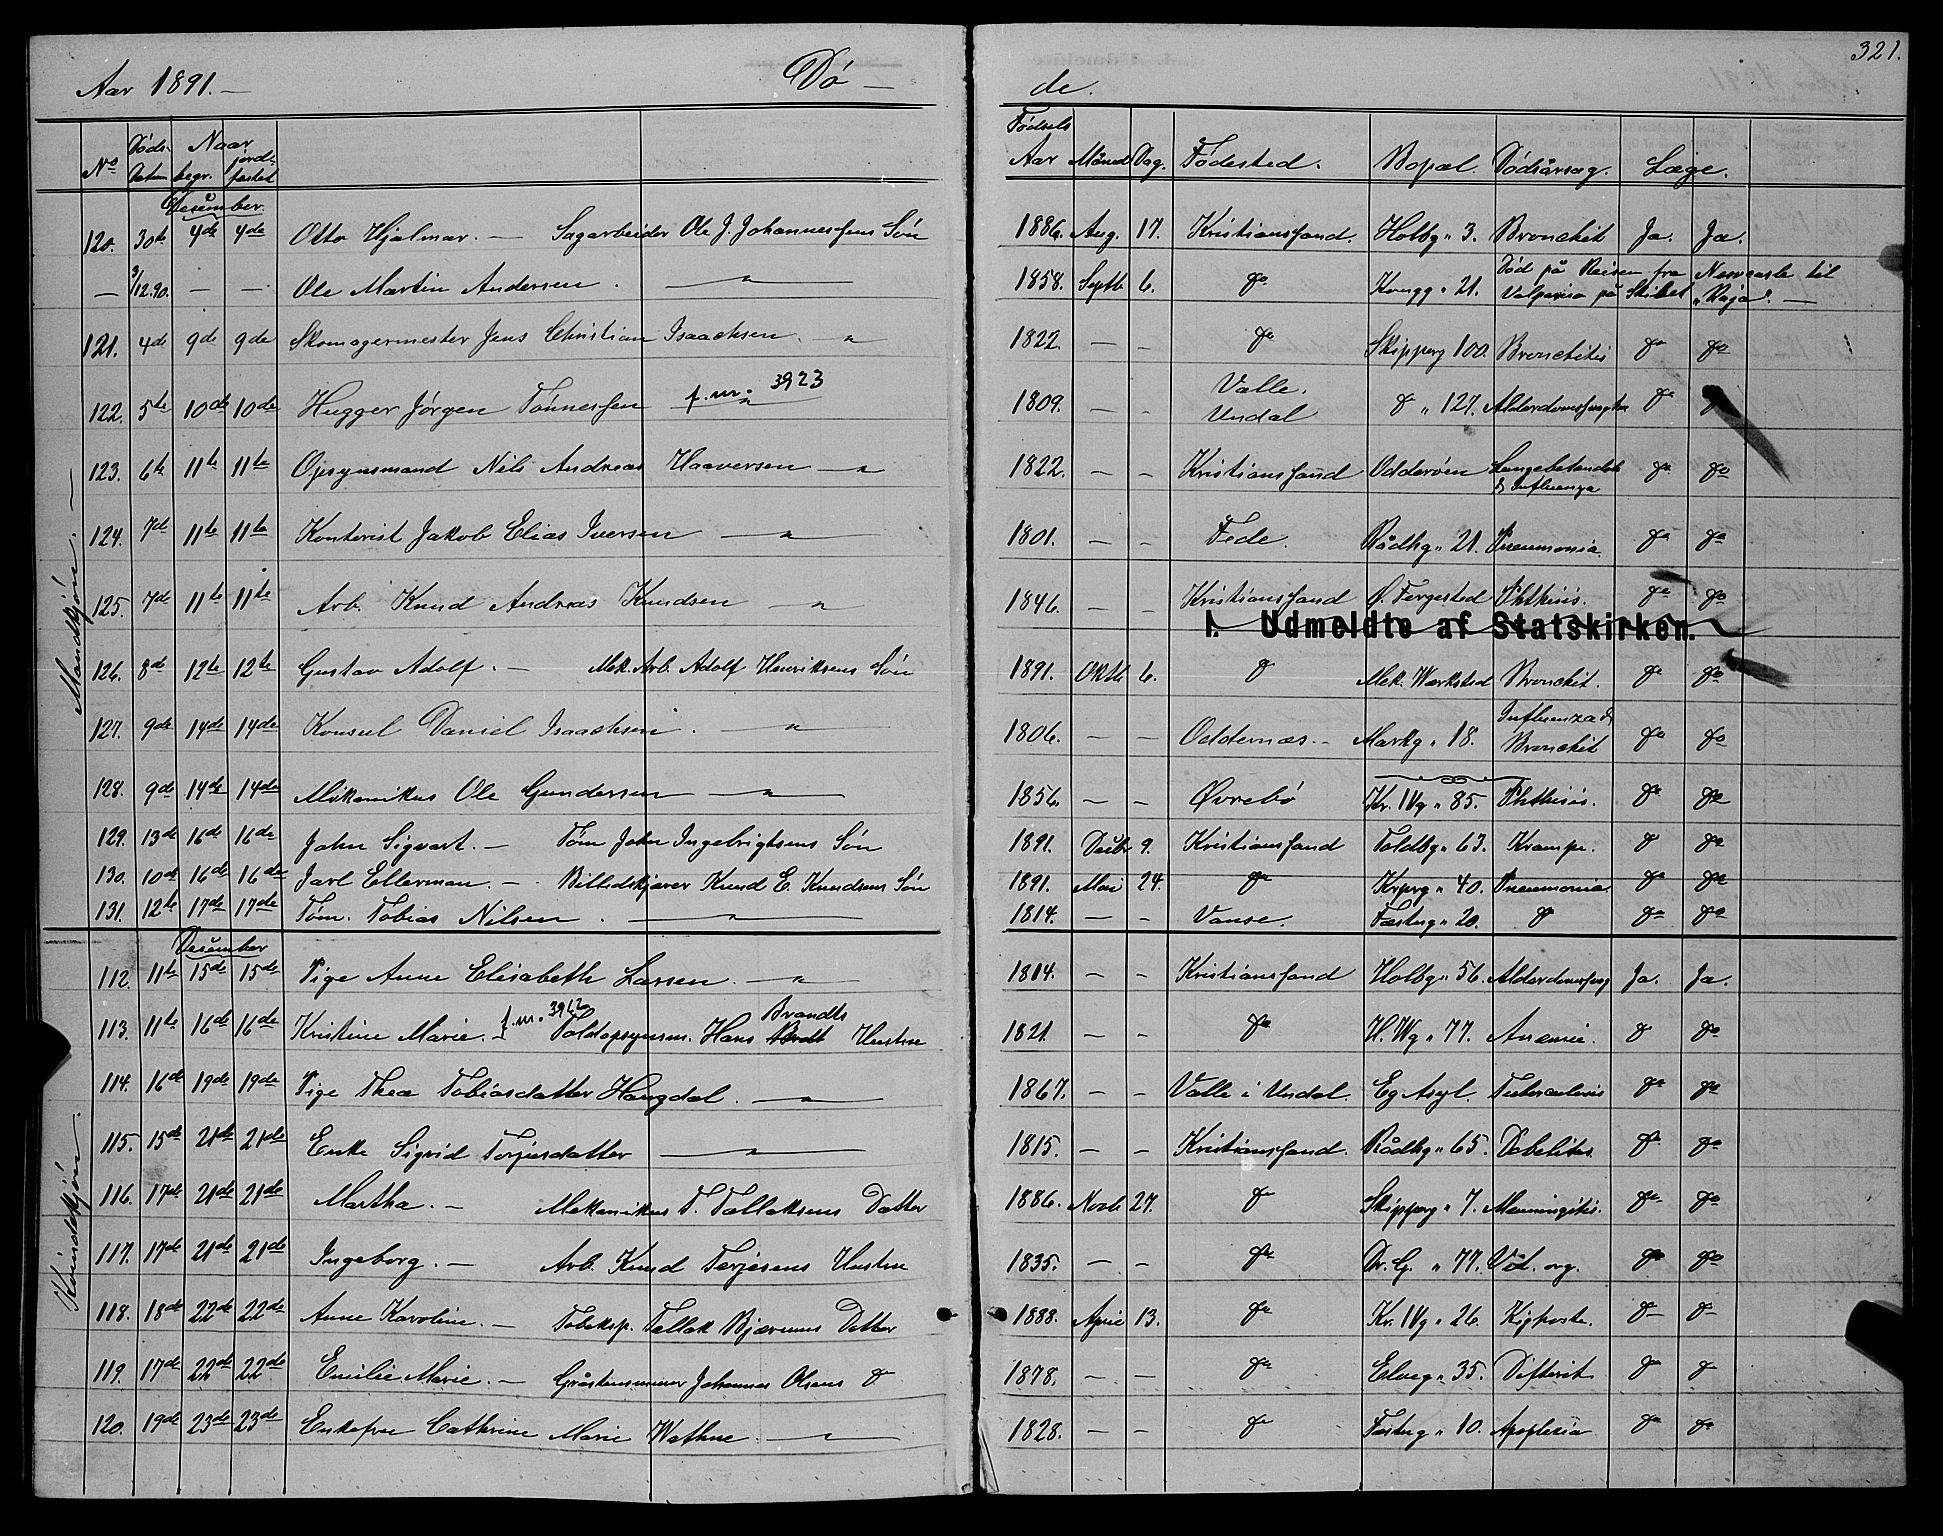 321.
Aar 1891. — Dø — de.
No Døds-Datum Naar begr. jordfæstet Fødsels Aar Maaned Dag. Fødested. Bopæl. Dødsårsag. Læge.
Mandkjøn. —
Desember.
120. 30te 4de 4de Otto Hjalmar. — Sagarbeider Ole J. Johannessens Søn 1886. Aug. 17. Kristianssand. Holbg " 3. Bronchit Ja. Ja.
— 3/12.90. — — Ole Martin Andersen. — " — 1858. Septb 6. do Kongg " 21. Død på Reisen fra Newcastle til
Valpariso på Skibet "Raja". —
121. 4de 9de 9de Skomagermester Jens Christian Isaachsen. — " 1822. — — do Skipperg 100. Bronchitis do do
122. 5te 10de 10de Hugger Jørgen Tønnessen f.nr. 3923 — " — 1809. — — Valle. Undal do " 127. do
123. 6te 11te 11te Opsynsmand Nils Andreas Haaversen — " 1822. — — Kristianssand Odderøen Lungebetændelse & Influenza do do
124. 7de 11te 11te Kontorist Jakob Elias Iversen — " — 1801. — — Fede. Rådhg " 21. Pneumonia. do do
125. 7de 11te 11te Arb. Knud Andreas Knudsen — " — 1846. — — Kristianssand Ø. Fergested Phthisis. do do
I. Udmeldte af Statskirken.
126. 8de 12te 12te Gustav Adolf. — Mek. Arb. Adolf Henriksens Søn 1891. Oktb 6. do Mek. Værksted Bronchit. do do
127. 9de 14de 14de Konsul Daniel Isaachsen. — " — 1806. — — Oddernæs. — Markg " 18. Influenza & Bronchit do do
128. 9de 14de 14de Mekanikus Ole Gundersen — " — 1856. — — Øvrebø Kr. IVg " 85. Phthisis. do do
129. 13de 16de 16de John Sigvart. — Tøm John Ingebrigtsens Søn 1891. Decbr 9. Kristianssand Toldbg " 63. Krampe. do do
130. 10de 16de 16de Jarl Ellerman. — Billedskjærer Knud E. Knudsens Søn 1891. Mai 24. do Krprg " 40. Pneumonia. do do
131. 12te 17de 17de Tøm. Tobias Nilsen. — " — 1814. — — Vanse. Fæstng " 20. do do do
Kvindekjøn. —
Desember
112. 11te 15de 15de Pige Anne Elisabeth Larsen. — " — 1814. — — Kristianssand Holbg " 56. Ja. Ja.
113. 11te 16de 16de Kristine Marie. — f.nr. 3962 Toldopsynsm. Hans Brandts Hustru 1821. — — do H. Wg " 77. Anæmie. do do
114. 16de 19de 19de Pige Thea Tobiasdatter Haugdal. — " — 1867. — — Valle i Undal. Eg Asyl. Tuberculosis do do
115. 15de 21de 21de Enke Sigrid Torjusdatter — " — 1815. — — Kristianssand. Rådhg " 65. do do
116. 17de 21de 21de Martha. — Mekanikus T. Tallaksens Datter 1886. Novb 27. do Skipperg " 7. Meningitis. do do
117. 17de 21de 21de Ingeborg. — Arb. Knud Terjesens Hustru 1835. — — do Dr. G. " 77. Vit. org. do do
118. 18de 22de 22de Anne Karoline. — Tobaksp. Tallak Bjørums Datter 1888. April 13. do Kr. IVg " 26. Kighoste. do do
119. 17de 22de 22de Emilie Marie. — Gråstensmurer Johannes Olsens do 1878. — — do Elveg " 35. Difterit do do
120. 19de 23de 23de Enkefru Cathrine Marie Wathne. — " — 1828. — — do Fæstng " 10. Apoplexia do do